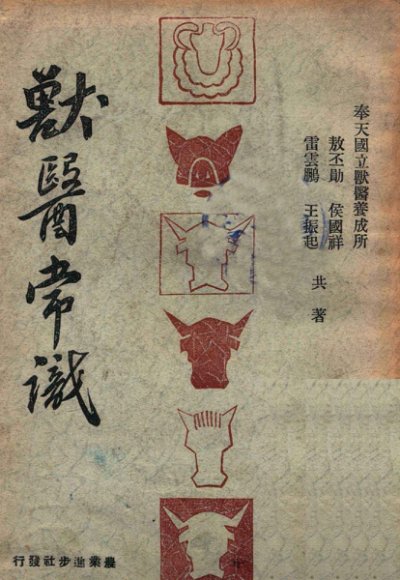 奉天國立獸醫養成所
敖丕勛 侯國祥
雷雲鵬 王振起
共著
獸醫常識
農業進步社發行